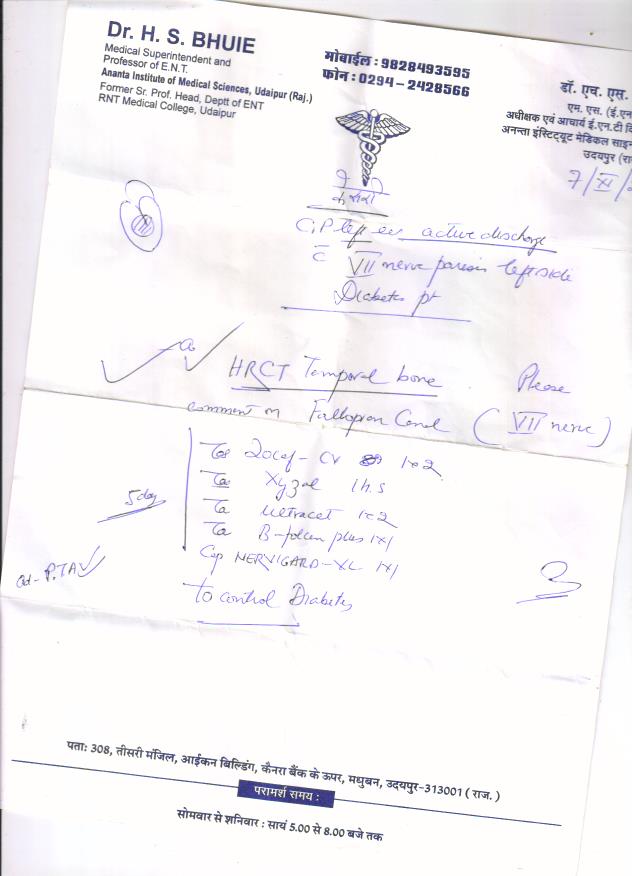 Dr. H. S. BHUIE
Medical Superintendent and
Professor of E.N.T.
Ananta Institute of Medical Sciences, Udaipur (Raj.)
Former Sr. Prof. Head, Deptt of ENT
RNT Medical College, Udaipur
मोबाईल : 9828493595
फोन : 0294 - 2428566
डॉ. एच. एस.
एम. एस. (ई.एन
अधीक्षक एवं आचार्य ई.एन.टी वि
अनन्ता इंस्टिट्यूट मेडिकल साइन
उदयपुर (रा
7/XI/
left ear active discharge
c̄ VII nerve paresis left side
Diabetes pt
HRCT Temporal bone. Please
comment on Fallopian Canal (VII nerve)
Zocef-CV 1x2
Xyzal 1 h.s
Ultracet 1x2
plus 1x1
Cap NERVIGARD-XL 1x1
5 day
Ad- P.TA
To control Diabetes
पता: 308, तीसरी मंजिल, आईकन बिल्डिंग, कैनरा बैंक के ऊपर, मधुबन, उदयपुर-313001 ( राज. )
परामर्श समय :
सोमवार से शनिवार : सायं 5.00 से 8.00 बजे तक